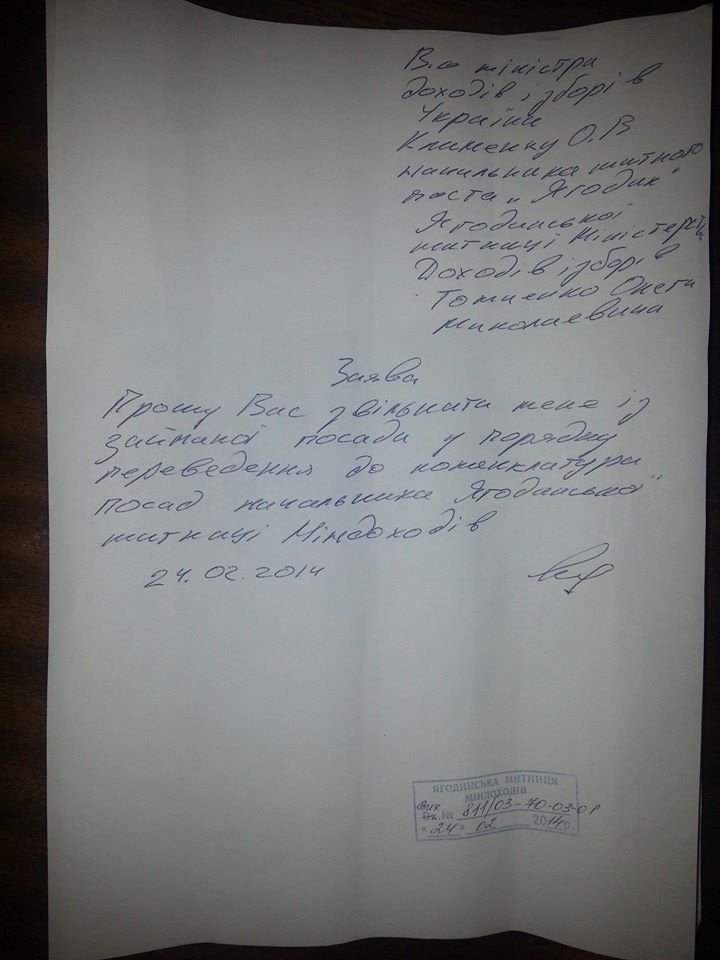 В.о міністра
доходів і зборів
України
Клименку О.В
начальника митного
поста „Ягодин"
Ягодинської
митниці Міністерства
Доходів і зборів
Томченко Олега
Миколаевича
Заява
Прошу Вас звільнити мене із
займаної посади у порядку
переведення до номенклатури
посад начальника Ягодинської
митниці Міндоходів
24.02.2014
ЯГОДИНСЬКА МИТНИЦЯ
МІНДОХОДІВ
Вх.№ 811/03-70-03-01
«24» 02 2014р.